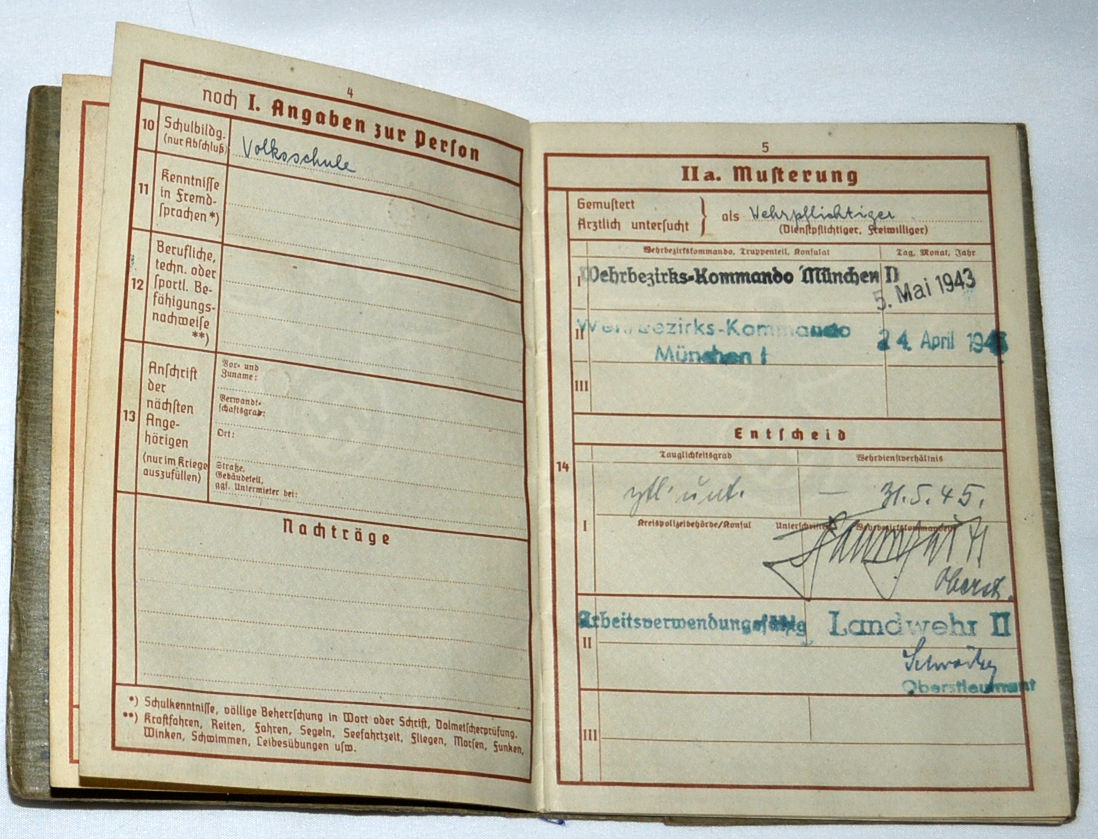 4
noch I. Angaben zur Person
10 Schulbildg.
(nur Abschluß)
Volksschule
11 Kenntnisse
in Fremd-
sprachen *)
12 Berufliche,
techn. oder
sportl. Be-
fähigungs-
nachweise
**)
13 Anschrift
der
nächsten
Ange-
hörigen
(nur im Kriege
auszufüllen)
Vor- und
Zuname:
Verwandt-
schaftsgrad:
Ort:
Straße,
Gebäudeteil,
ggf. Untermieter bei:
Nachträge
*) Schulkenntnisse, völlige Beherrschung in Wort oder Schrift, Dolmetscherprüfung.
**) Kraftfahren, Reiten, Fahren, Segeln, Seefahrtzeit, Fliegen, Morsen, Funken,
Winken, Schwimmen, Leibesübungen usw.
5
IIa. Musterung
Gemustert
Ärztlich untersucht } als Wehrpflichtiger
(Dienstpflichtiger, Freiwilliger)
Wehrbezirkskommando, Truppenteil, Konsulat Tag, Monat, Jahr
I Wehrbezirks-Kommando München II 5. Mai 1943
II Wehrbezirks-Kommando 24. April
München I
III
Entscheid
14
Tauglichkeitsgrad Wehrdienstverhältnis
ztl. unt. — 31.5.45.
I Kreispolizeibehörde/Konsul Unterschriften Wehrbezirkskommandeur
Oberst.
II Arbeitsverwendungsfähig Landwehr II
Oberstleutnant
III